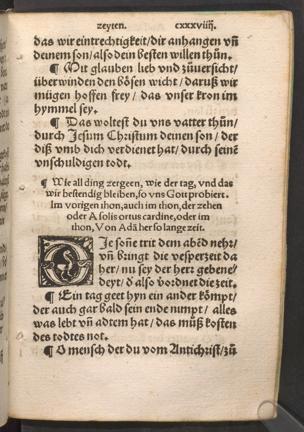 zeyten. cxxxviiij.
das wir eintrechtigkeit/dir anhangen vñ
deinem son/alsodein besten willen thůn.
¶ Mit glauben lieb vnd zůuersicht/
überwinden den bösen wicht/daruß wir
mügen hoffen frey/das vnser kron im
hymmel sey.
¶ Das wöltest du vns vatter thůn/
durch Jesum Christum deinen son/der
diß vmb dich verdienet hat/durch seinē
vnschuldigen todt.
¶ Wie all ding zergeen, wie der tag, vnd das
wir bestendig bleiben, so vns Gott probiert.
Im vorigen thon, auch im thon, der zehen
oder A solis ortus cardine, oder im
thon, Von Adã her so lange zeit.
Die soñe trit dem abẽd nehr/
vñ bringt die vesperzeit da
her/nu sey der herr gebene/
deyt/d also vordnet die zeit.
¶ Ein tag geet hyn ein ander kömpt/
der auch gar bald sein ende nimpt/alles
was lebt vñ adtem hat/das můß kosten
des todtes not.
¶ O mensch der du vom Antichrist/zů